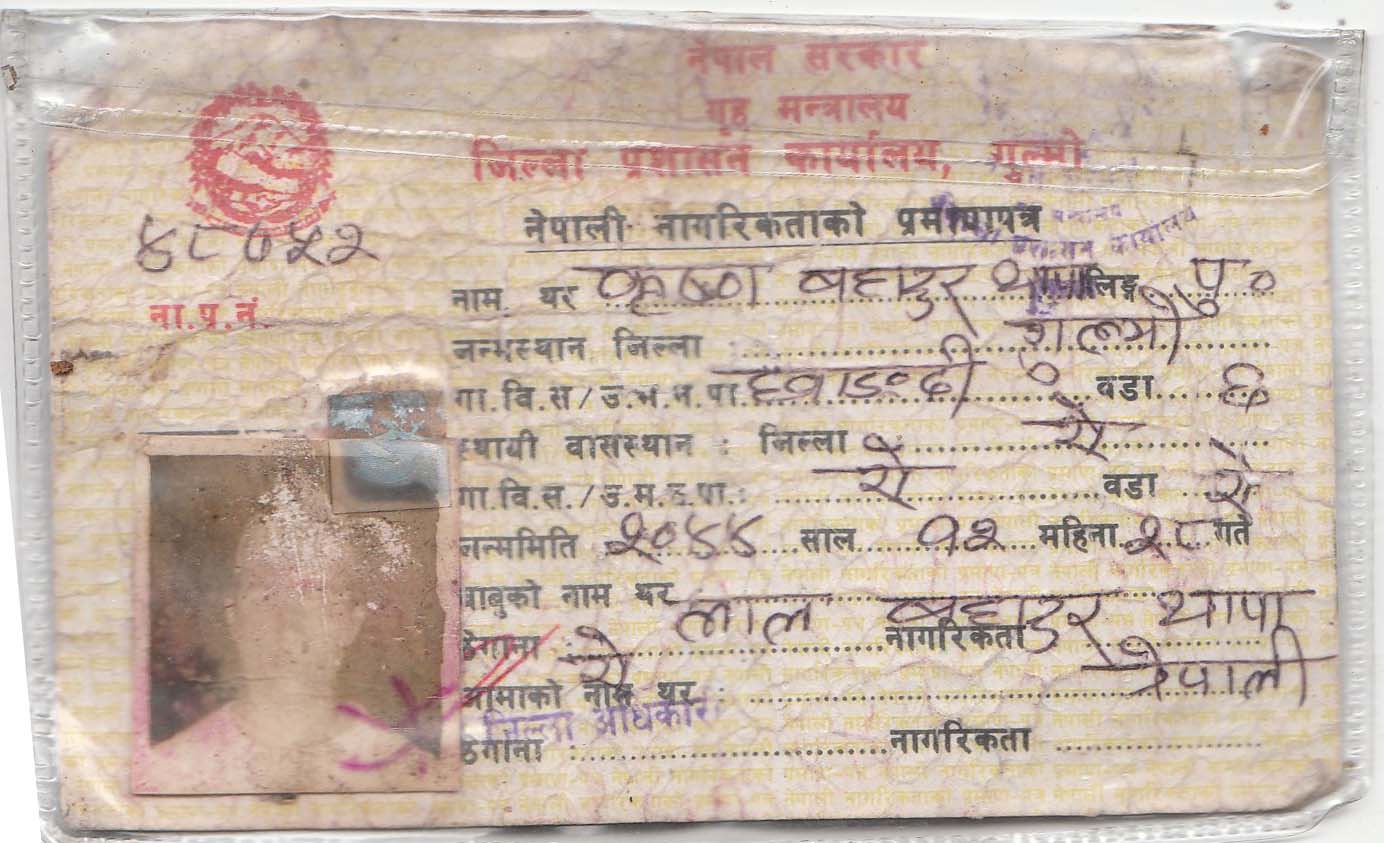 नेपाल सरकार
गृह मन्त्रालय
जिल्ला प्रशासन कार्यालय, गुल्मी
नेपाली नागरिकताको प्रमाणपत्र
ना.प्र.नं.
नाम थर कृष्ण बहादुर थापा लिङ्ग पु०
जन्मस्थान जिल्ला : गुल्मी
गा.वि.स/उ.म.न.पा. वडा ६
स्थायी वासस्थान : जिल्ला : ऐ
गा.वि.स./उ.म.न.पा.: ऐ वडा ऐ
जन्ममिति २०४४ साल १२ महिना २८ गते
बाबुको नाम थर लाल बहादुर थापा
ठेगाना : ऐ नागरिकता नेपाली
आमाको नाम थर :
जिल्ला अधिकारी
ठेगाना : नागरिकता